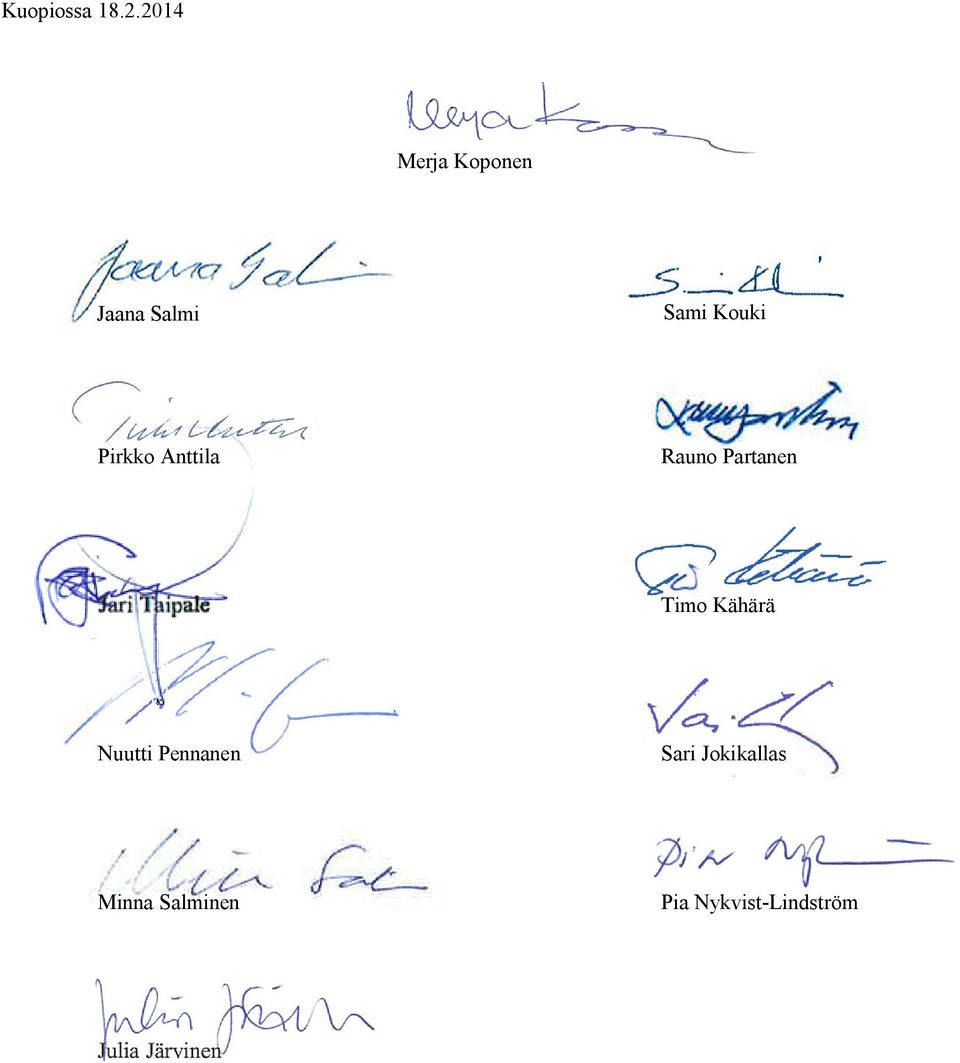 Kuopiossa 18.2.2014
Merja Koponen
Jaana Salmi Sami Kouki
Pirkko Anttila Rauno Partanen
Jari Taipale Timo Kähärä
Nuutti Pennanen Sari Jokikallas
Minna Salminen Pia Nykvist-Lindström
Julia Järvinen